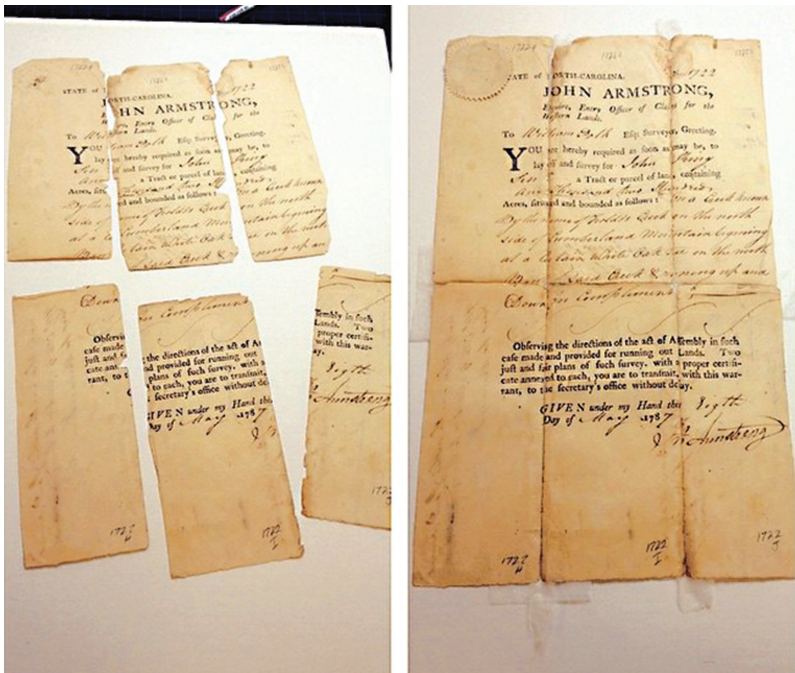 1722
STATE of NORTH-CAROLINA.
JOHN ARMSTRONG,
Esquire, Entry Officer of Claims for the
Western Lands.
To William Polk Esq; Surveyor, Greeting.
YOU are hereby required as soon as may be, to
lay off and survey for John
a Tract or parcel of land, containing
Thousand two Hundred
Acres, situated and bounded as follows: on a Creek known
By the name of Creek on the north
side of Cumberland Mountain begining
at a Certain White Oak on the north
Said Creek & running up and
Down for Compliment
Observing the directions of the act of Assembly in such
case made and provided for running out Lands. Two
just and fair plans of such survey, with a proper certifi-
cate annexed to each, you are to transmit, with this war-
rant, to the secretary's office without delay.
GIVEN under my Hand this
Day of May 1787
Armstrong
1722
H
1722
I
1722
J
No. 1722
STATE of NORTH-CAROLINA.
JOHN ARMSTRONG,
Esquire, Entry Officer of Claims for the
Western Lands.
To William Polk Esq; Surveyor, Greeting.
YOU are hereby required as soon as may be, to
lay off and survey for John
a Tract or parcel of land, containing
Thousand two Hundred
Acres, situated and bounded as follows: on a Creek known
By the name of Creek on the north
side of Cumberland Mountain begining
at a Certain White Oak on the north
Said Creek & running up and
Down for Compliment
Observing the directions of the act of Assembly in such
case made and provided for running out Lands. Two
just and fair plans of such survey, with a proper certifi-
cate annexed to each, you are to transmit, with this war-
rant, to the secretary's office without delay.
GIVEN under my Hand this
Day of May 1787
Armstrong
1722
H
1722
I
1722
J